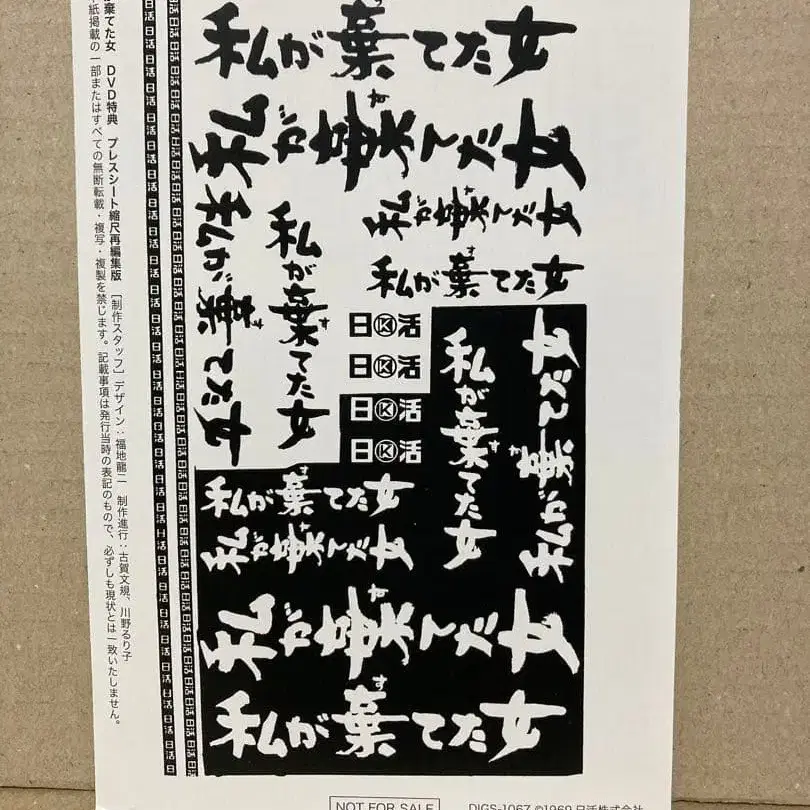 私が棄てた女
私が棄てた女
私が棄てた女
私が棄てた女
私が棄てた女
私が棄てた女
日K活
日K活
日K活
日K活
私が棄てた女
私が棄てた女
私が棄てた女
私が棄てた女
私が棄てた女
私が棄てた女
日活日活日活日活日活日活日活日活日活日活日活日活日活日活日活日活日活日活
が棄てた女 DVD特典 プレスシート縮尺再編集版 [制作スタッフ] デザイン:福地龍二 制作進行:古賀文規、川野るり子
紙掲載の一部またはすべての無断転載・複写・複製を禁じます。記載事項は発行当時の表記のもので、必ずしも現状とは一致いたしません。
NOT FOR SALE
DIGS-1067 ©1969 日活株式会社